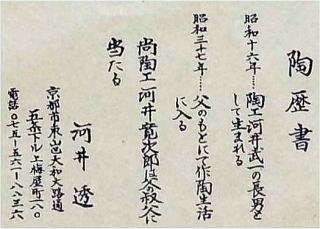 陶歴書
昭和十六年……陶工河井武一の長男と
して生まれる
昭和三十七年……父のもとにて作陶生活
に入る
尚陶工河井寛次郎は父の叔父に
当たる
河井 透
京都市東山区大和大路通
五条下ル上梅屋町一八〇
電話〇七五ー五六一ー八八三六